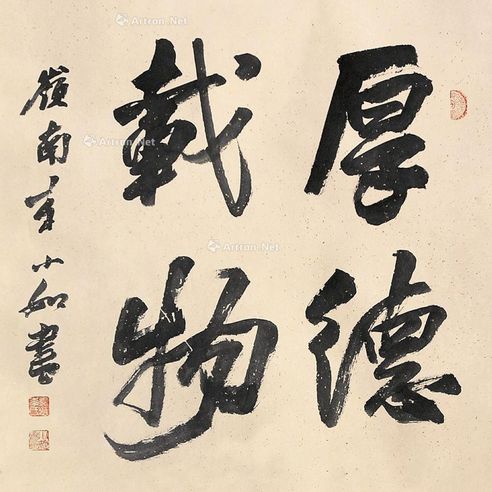 厚德
載物
嶺南李小如書
Artron.Net
Artron.Net
Artron.Net